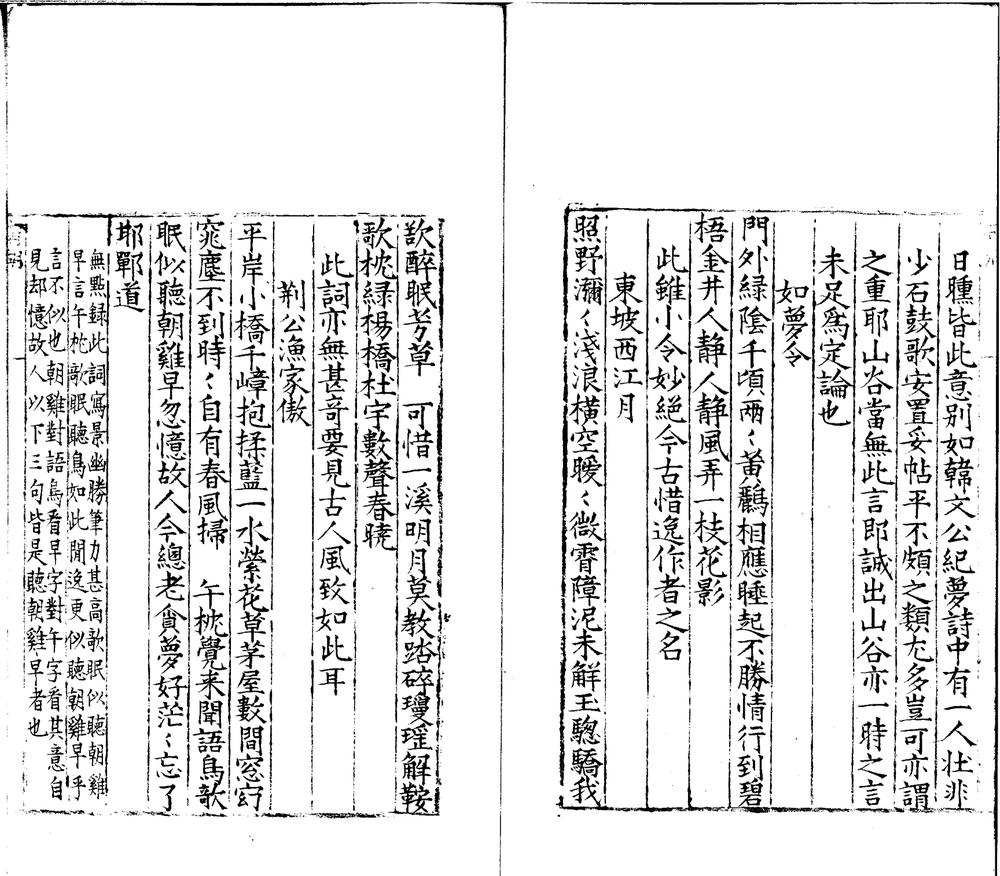 日曛皆此意别如韓文公紀夢詩中有一人壮非
少石鼓歌安置妥帖平不頗之類尤多豈可亦謂
之重耶山谷當無此言即誠出山谷亦一時之言
未足爲定論也
如夢令
門外緑陰千頃兩〻黄鸝相應睡起不勝情行到碧
梧金井人静人静風弄一枝花影
此雖小令妙絶今古惜逸作者之名
東坡西江月
照野瀰〻淺浪横空曖〻微霄障泥未解玉驄驕我
欲醉眠芳草　可惜一溪明月莫教踏碎瓊瑶解鞍
歌枕緑楊橋杜宇數聲春曉
此詞亦無甚竒要見古人風致如此耳
荆公漁家傲
平岸小橋千嶂抱揉藍一水縈花草茅屋數間窓窈
窕塵不到時〻自有春風掃　午枕覺来聞語鳥歌
眠似聽朝雞早忽憶故人今總老貪夢好茫〻忘了
邯鄲道
無㸃録此詞寫景幽勝筆力甚高歌眠似聽朝雞
早言午枕歌眠聽鳥如此閒逸更似聽朝雞早乎
言不似也朝雞對語鳥看早字對午字看其意自
見却憶故人以下三句皆是聽朝雞早者也